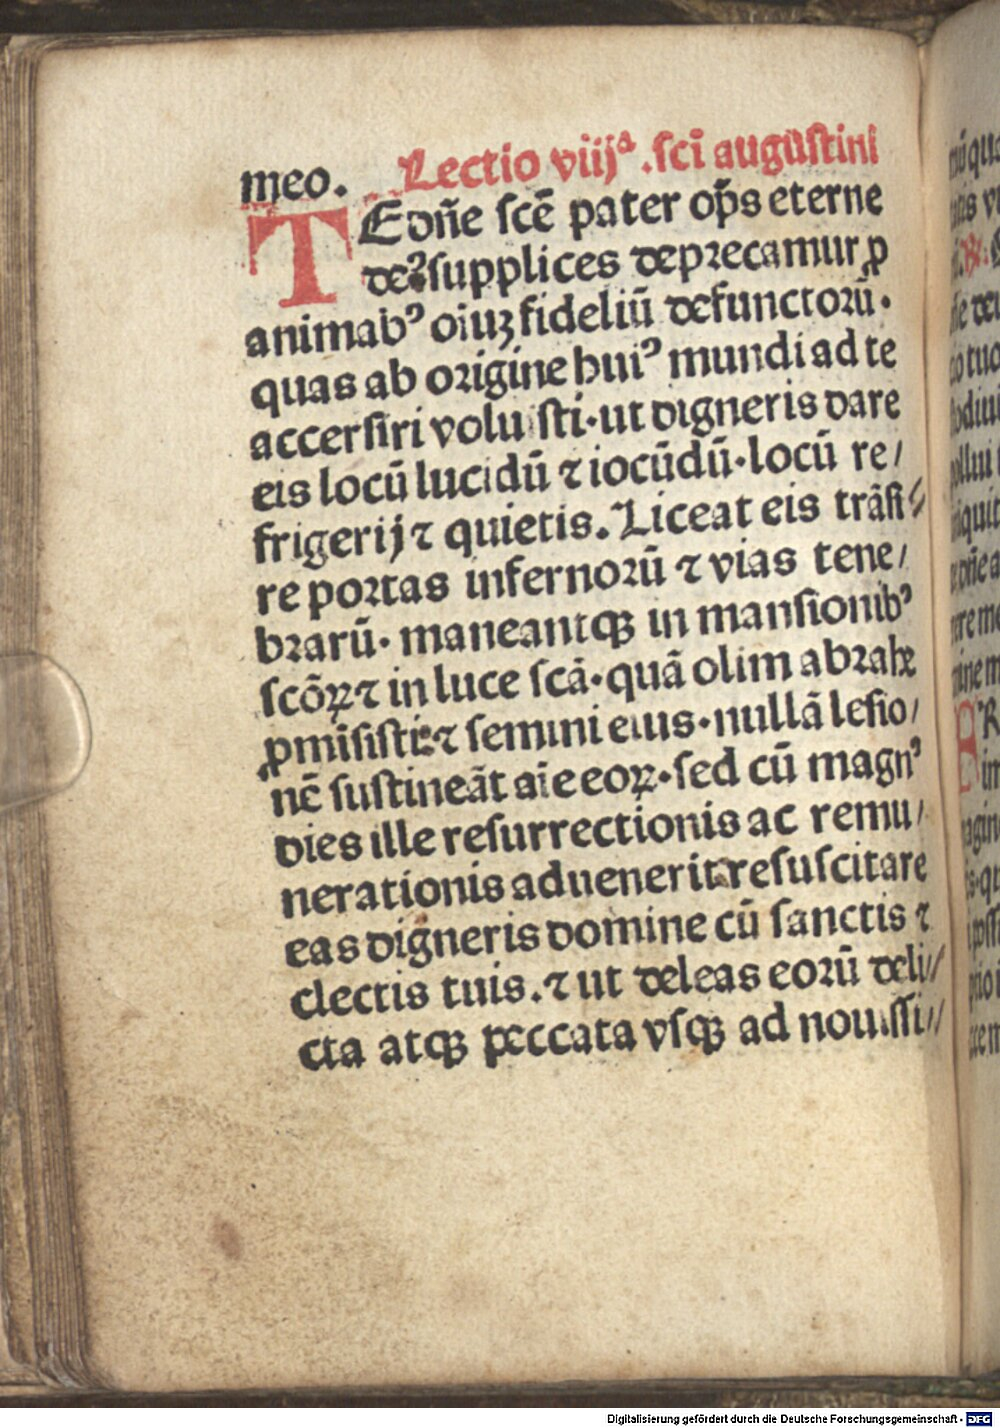 meo. Lectio viijª .scī augustini
TE dñe scē pater op̄s eterne
deꝰ supplices deprecamur ꝓ
animabꝰ oiuꝫ fideliū defunctorū·
quas ab origine huiꝰ mundi ad te
accersiri voluisti·ut digneris dare
eis locū lucidū ⁊ iocūdū·locū re/
frigerij ⁊ quietis. Liceat eis trāsi/
re portas infernorū ⁊ vias tene/
brarū· maneantqꝫ in mansionibꝰ
scōꝝ ⁊ in luce scā·quā olim abrahe
ꝓmisisti ⁊ semini eius·nullā lesio/
nē sustineāt aīe eoꝝ·sed cū magnꝰ
dies ille resurrectionis ac remu/
nerationis aduenerit resuscitare
eas digneris domine cū sanctis ⁊
electis tuis. ⁊ ut deleas eorū deli//
cta atqꝫ peccata vsqꝫ ad nouissi//
Digitalisierung gefördert durch die Deutsche Forschungsgemeinschaft - DFG